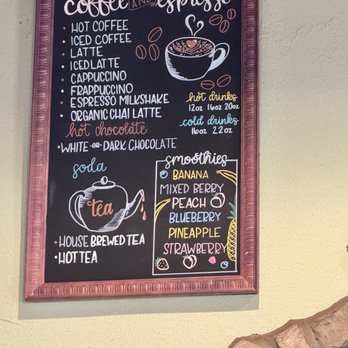 coffee AND espresso
• HOT COFFEE
• ICED COFFEE
• LATTE
• ICED LATTE
• CAPPUCCINO
• FRAPPUCCINO
ESPRESSO MILKSHAKE
• ORGANIC CHAI LATTE
hot drinks
12oz 16oz 20oz
cold drinks
16oz 22oz
hot chocolate
• WHITE -OR- DARK CHOCOLATE
soda
tea
• HOUSE BREWED TEA
• HOT TEA
smoothies
BANANA
MIXED BERRY
PEACH
BLUEBERRY
PINEAPPLE
STRAWBERRY